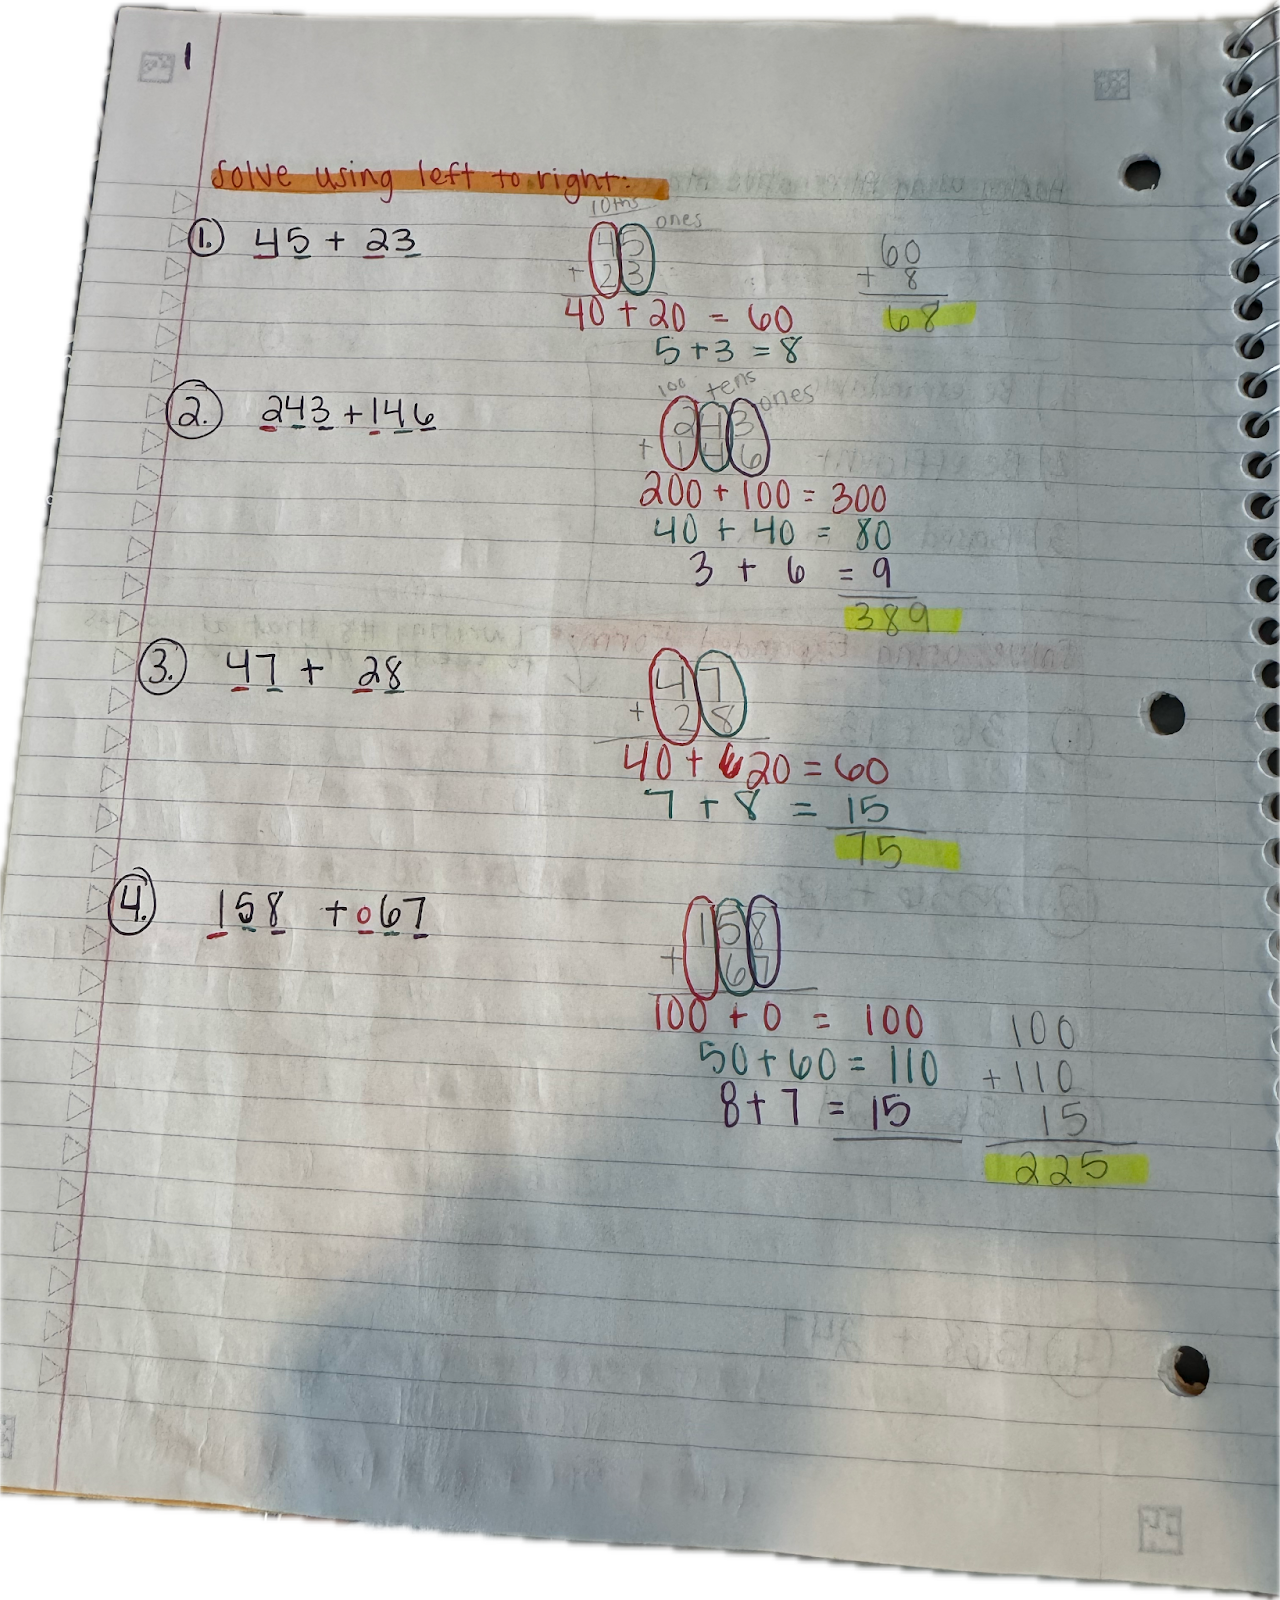 1
Solve using left to right:
10ths
ones
1. 45 + 23
45
+ 23
40 + 20 = 60
5 + 3 = 8
60
+ 8
68
100 tens ones
2. 243 + 146
243
+ 146
200 + 100 = 300
40 + 40 = 80
3 + 6 = 9
389
3. 47 + 28
47
+ 28
40 + 20 = 60
7 + 8 = 15
75
4. 158 + 067
158
+ 67
100 + 0 = 100
50 + 60 = 110
8 + 7 = 15
100
+ 110
15
225